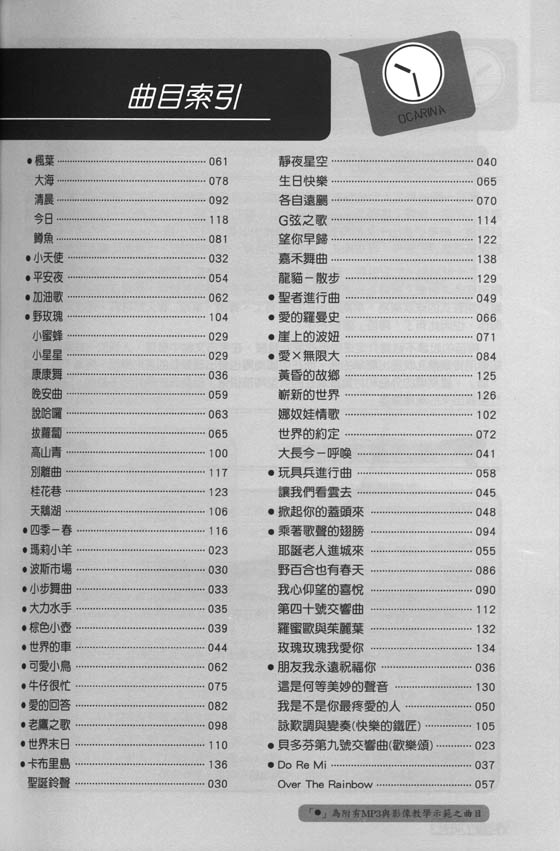 曲目索引
OCARINA
●楓葉 061
大海 078
清晨 092
今日 118
鱒魚 081
●小天使 032
●平安夜 054
●加油歌 062
●野玫瑰 104
小蜜蜂 029
小星星 029
康康舞 036
晚安曲 059
說哈囉 063
拔蘿蔔 065
高山青 100
別離曲 117
桂花巷 123
天鵝湖 106
●四季－春 116
●瑪莉小羊 023
●波斯市場 030
●小步舞曲 033
●大力水手 035
●棕色小壺 039
●世界的車 044
●可愛小鳥 062
●牛仔很忙 075
●愛的回答 082
●老鷹之歌 098
●世界末日 110
●卡布里島 136
聖誕鈴聲 030
靜夜星空 040
生日快樂 065
各自遠颺 070
G弦之歌 114
望你早歸 122
嘉禾舞曲 138
龍貓－散步 129
●聖者進行曲 049
●愛的羅曼史 066
●崖上的波妞 071
●愛×無限大 084
黃昏的故鄉 125
嶄新的世界 126
娜奴娃情歌 102
世界的約定 072
大長今－呼喚 041
●玩具兵進行曲 058
讓我們看雲去 045
●掀起你的蓋頭來 048
●乘著歌聲的翅膀 094
耶誕老人進城來 055
野百合也有春天 086
我心仰望的喜悅 090
第四十號交響曲 112
羅蜜歐與茱麗葉 132
玫瑰玫瑰我愛你 134
●朋友我永遠祝福你 036
這是何等美妙的聲音 130
我是不是你最疼愛的人 050
詠歎調與變奏(快樂的鐵匠) 105
●貝多芬第九號交響曲(歡樂頌) 023
●Do Re Mi 037
Over The Rainbow 057
「●」為附有MP3與影像教學示範之曲目